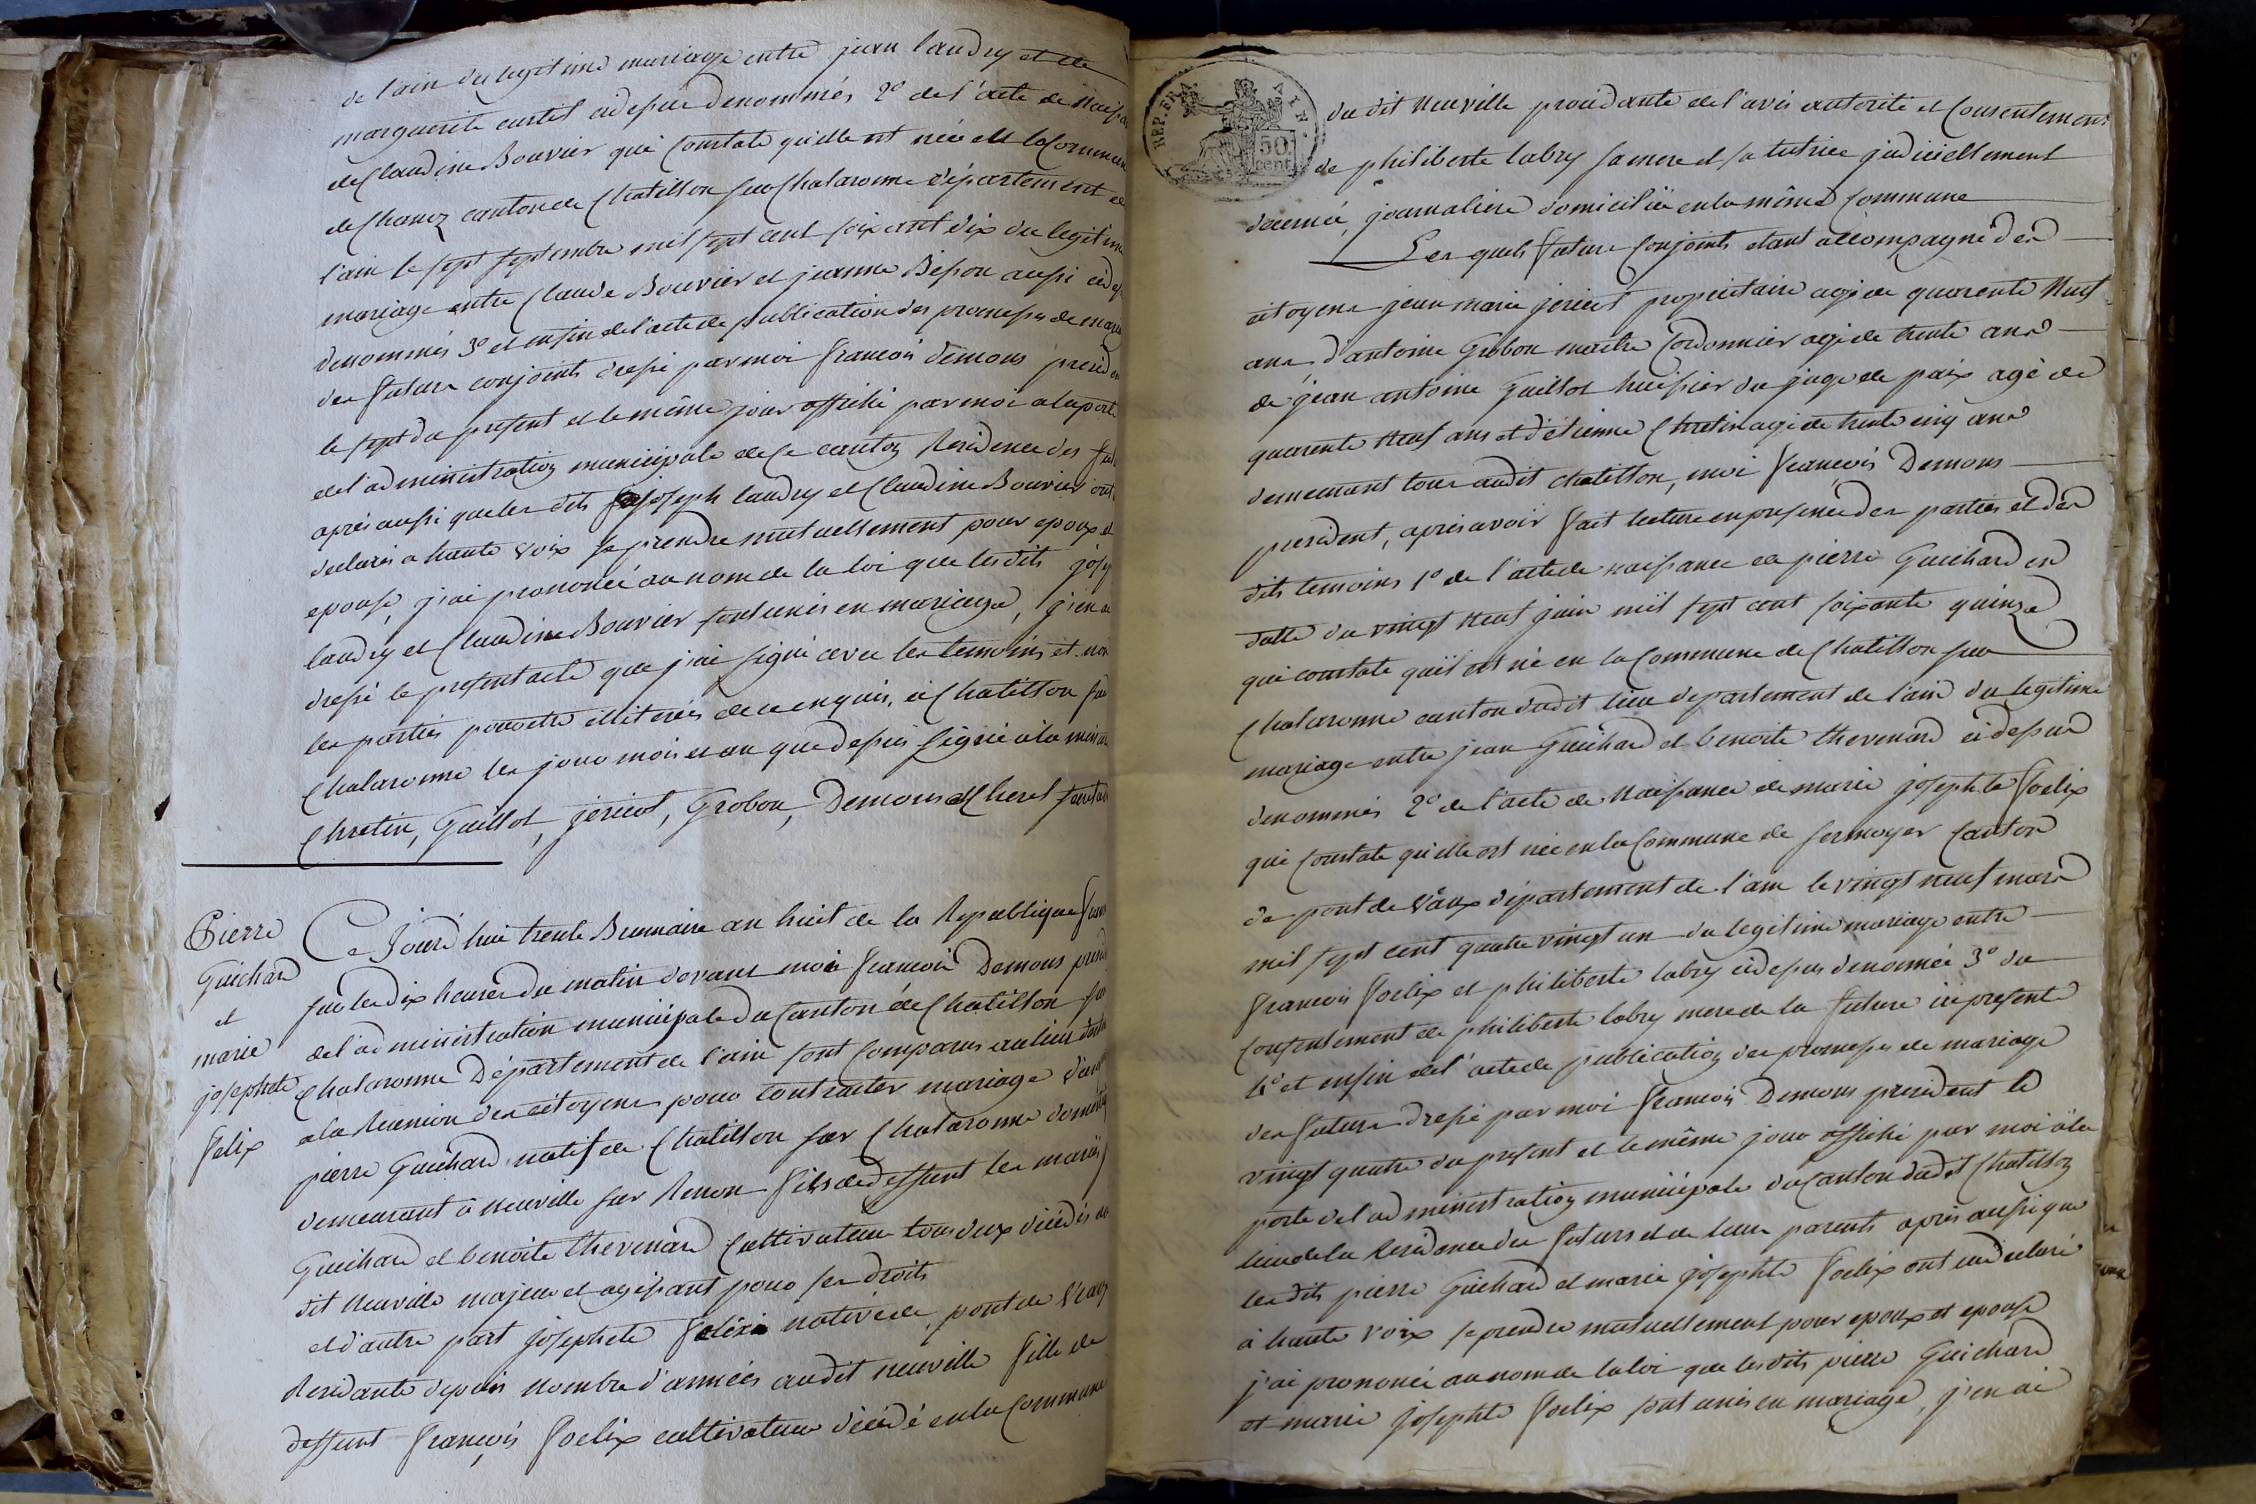 de l'ain du legitime mariage entre jean landry et de
marguerite curtil cidessus denommés 2º de l'acte de Naissa
de Claudine Bouvier qui Constate quelle est née de la Commune
de Chanoz canton de Chatillon sur Chalaronne département de
l'ain le sept septembre mil sept cent soixant dix du legitime
mariage entre Claude Bouvier et jeanne Bisson aussi cides
denommés 3º et enfin de l'acte de publication des promesses de maria
des future conjoints dressé par moi francois Demons presiden
le sept du present et le même jour affiché par moi a la porte
de l'administration municipale de ce canton Residence des fut
après aussi que les dits joseph landry et Claudine Bouvier ont
declarés a haute voix se prendre mutuellement pour epoux et
epouse, j'ai prononcé au nom de la loi que lesdits josep
landry et Claudine Bouvier sont unis en mariage, j'en ai
dressé le present acte que j'ai signé avec les temoins et non
les parties pour etre illiterés de ce enquis, à Chatillon sur
Chalaronne les jour mois et an que dessus signé a la minute
Chretin, Guillot, jericot, Grobon, Demons et Cheret secretair
Pierre
Guichard
et
marie
josephte
felix
Ce Jourd'hui trente Brumaire an huit de la Republique fran
sur les dix heures du matin devant moi francois Demons presid
de l'administration municipale du Canton de Chatillon sur
Chalaronne Département de l'ain sont Comparus au lieu destin
a la Reunion des citoyens pour contracter mariage d'une
pierre Guichard natif de Chatillon sur Chalaronne domestiq
demeurant à neuville sur Renon fils de deffunt les mariés
Guichard et benoite thevenard Cultivateur tous deux décédés au
dit Neuville majeur et agissant pour ses droits
et d'autre part josephete felix native de pont de Vaux
Residante depuis nombre d'années audit neuville fille de
deffunt francois foelix cultivateur décédé en la Commune
REP. FRA.
50
cent
du dit Neuville procedante de l'avis autorité et Consentement
de philiberte labry sa mere et sa tutrice judiciellement
decernée, journaliere domiciliée en la même Commune
Les quels future Conjoints etant accompagné des
citoyens jean marie jericot propriétaire agé de quarente Neuf
ans d'antoine Grobon maitre Cordonnier agé de trente ans
de jean antoine Guillot huissier du juge de paix agé de
quarente Neuf ans et d'étienne Chretin agé de trente cinq ans
demeurant tous audit chatillon, moi francois Demons
president, après avoir fait lecture en presence des parties et des
dits temoins 1º de l'acte de naissance de pierre Guichard en
datte du vingt neuf juin mil sept cent soixante quinze
qui constate qu'il est né en la Commune de Chatillon sur
Chalaronne canton dudit lieu departement de l'ain du legitime
mariage entre jean Guichard et benoite thevenard cidessus
denommés 2º de l'acte de Naissance de marie josephte foelix
qui Constate qu'elle est née en la Commune de sermoyer Canton
de pont de Vaux département de l'ain le vingt neuf mars
mil sept cent quatre vingt un du legitime mariage entre
francois foelix et philiberte labry cidessus denommée 3º du
Consentement de philiberte labry mere de la future ici presente
4º et enfin de l'acte de publication des promesses de mariage
des futurs dressé par moi francois Demons president le
vingt quatre du present et le même jour affiché par moi à la
porte de l'administration municipale du Canton dudit Chatillon
lieu de la Residence des futurs et de leurs parents après aussi que
lesdits pierre Guichard et marie josephte foelix ont eu declaré
à haute voix se prendre mutuellement pour epoux et epouse
j'ai prononcé au nom de la loi que lesdits pierre Guichard
et marie josephte foelix sont unis en mariage, j'en ai